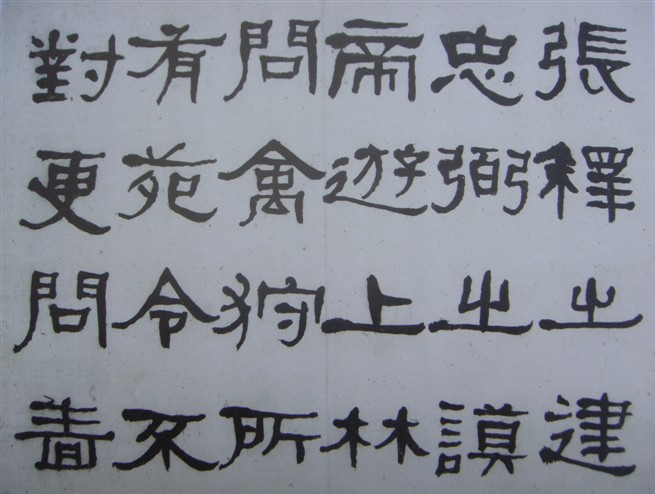 張釋之建
忠弼之謨
帝遊上林
問禽狩所
有苑令不
對更問嗇